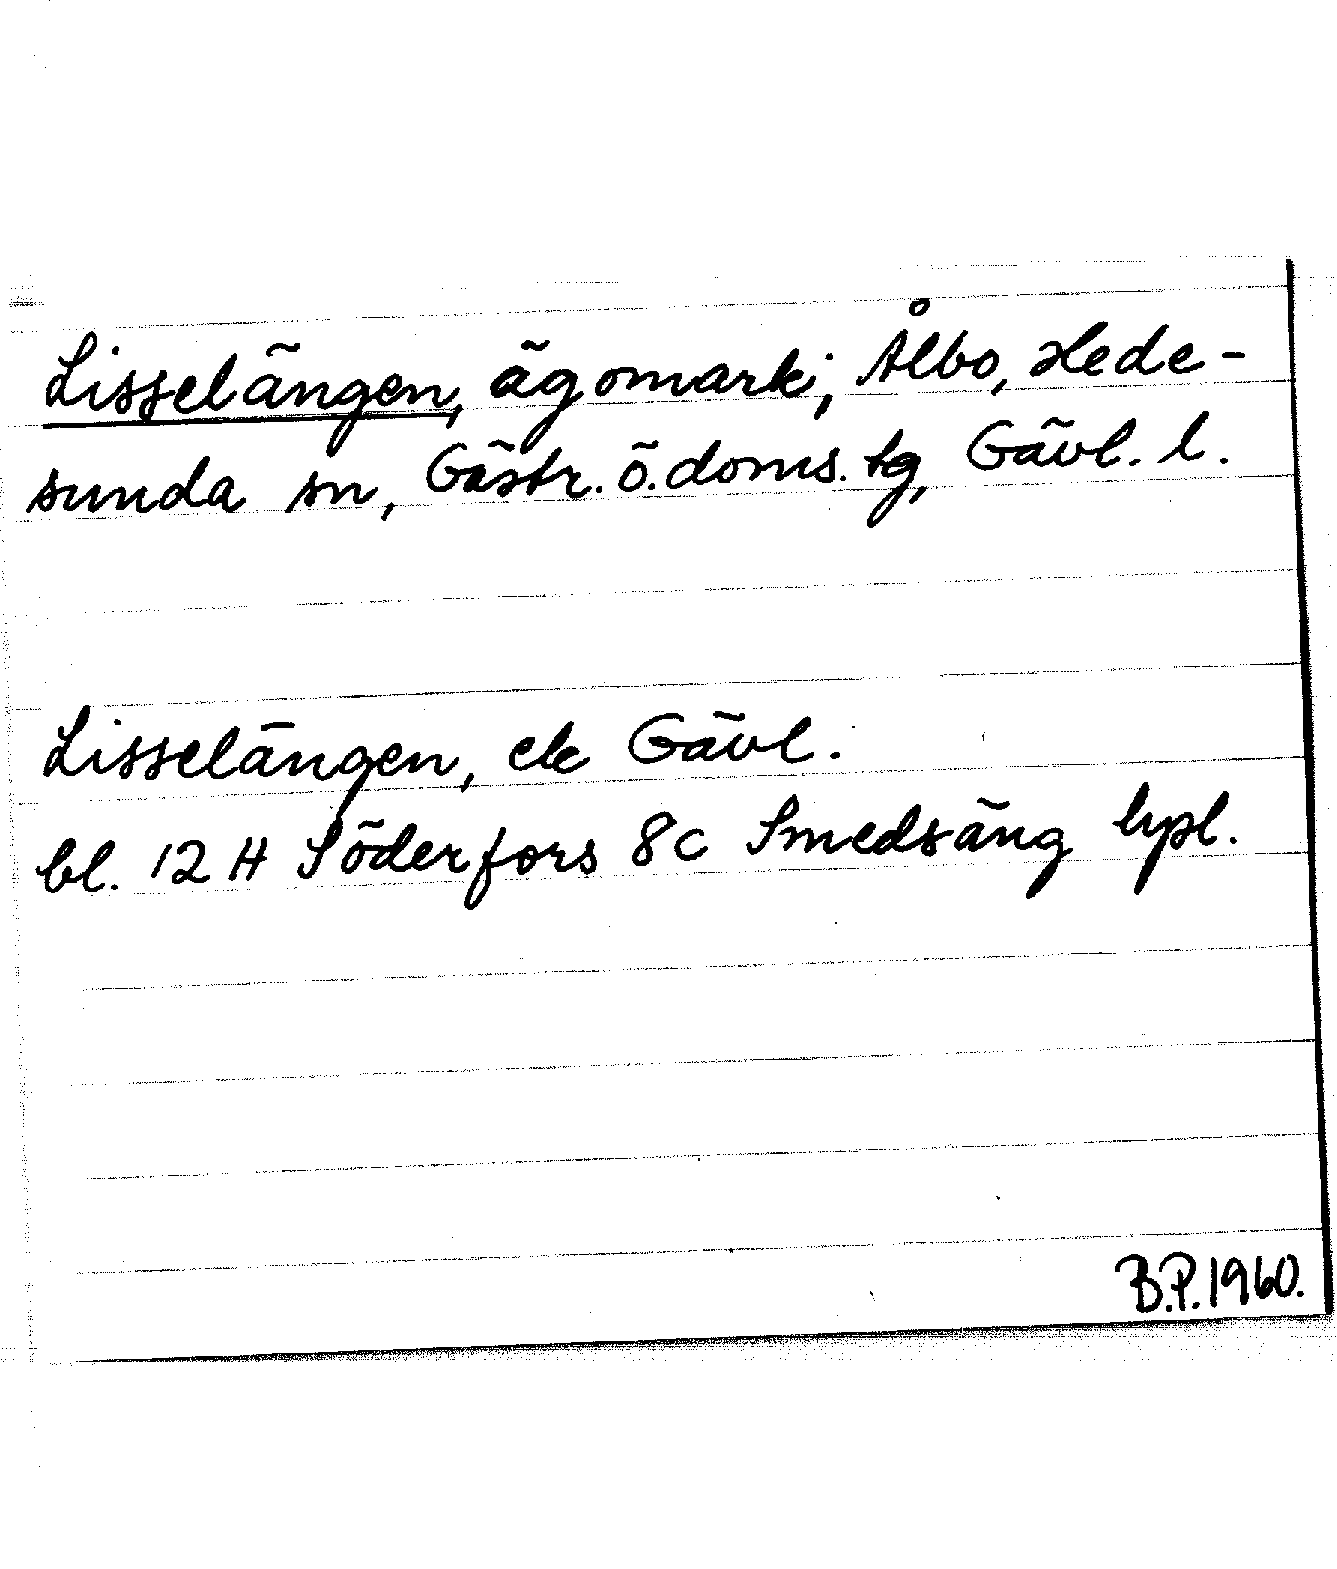 Lisselängen, ägomark; Ålbo, Hede-
sunda sn, Gästr. ö. doms. tg, Gävl. l.
Lisselängen, ek Gävl.
bl. 12 H Söderfors 8c Smedsäng hpl.
B.P. 1960.